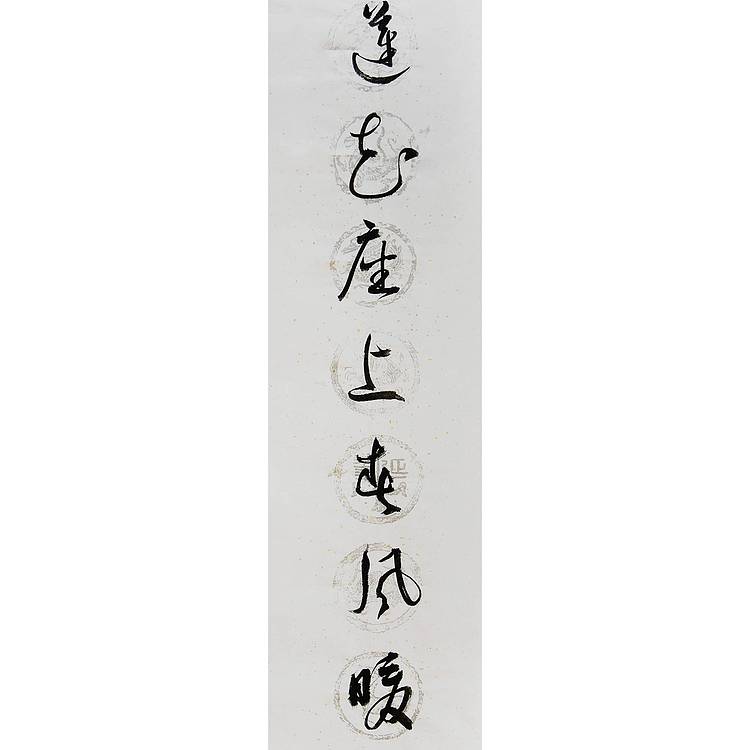 莲花座上春风暖